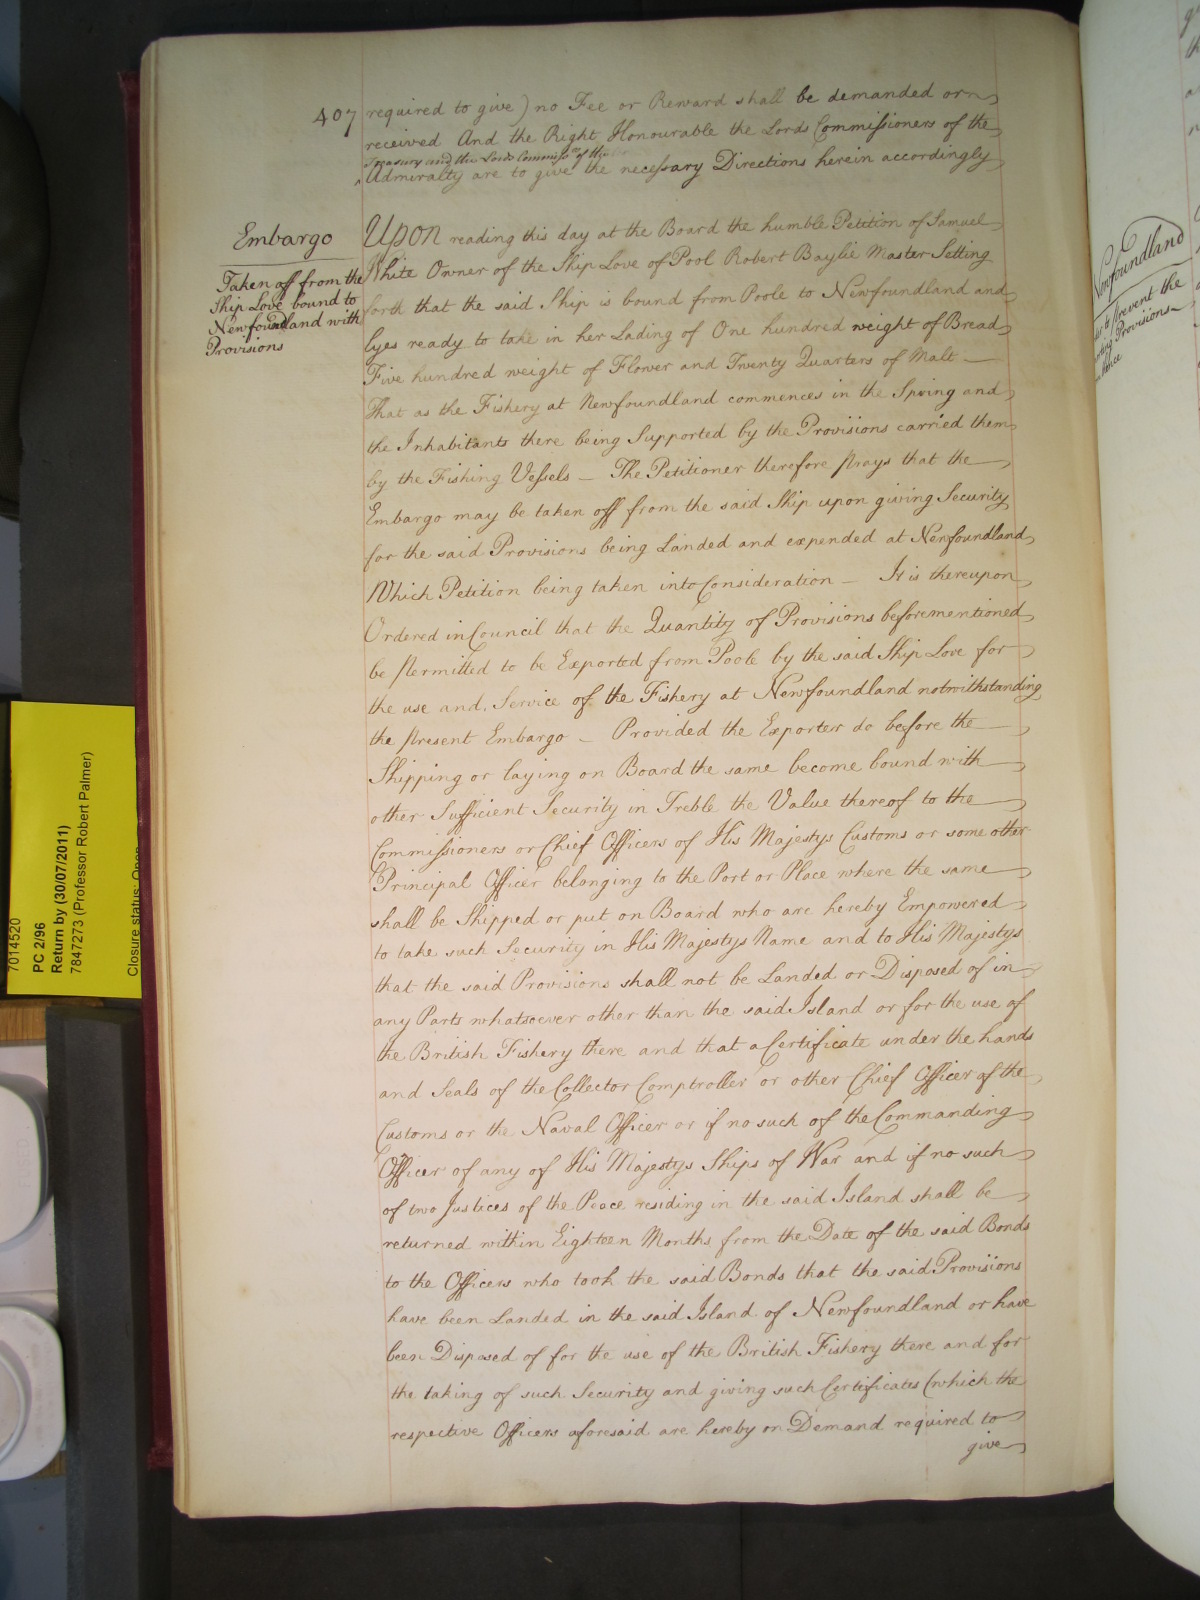 407
required to give) no Fee or Reward shall be demanded or
received And the Right Honourable the Lords Commissioners of the
Treasury and the Lords Commissrs. of the
Admiralty are to give the necessary Directions herein accordingly
Embargo
Taken off from the
Ship Love bound to
Newfoundland with
Provisions
Upon reading this day at the Board the humble Petition of Samuel
White Owner of the Ship Love of Pool Robert Baylie Master Setting
forth that the said Ship is bound from Poole to Newfoundland and
lyes ready to take in her Lading of One hundred weight of Bread
Five hundred weight of Flower and Twenty Quarters of Malt —
That as the Fishery at Newfoundland commences in the Spring and
the Inhabitants there being Supported by the Provisions carried them
by the Fishing Vessels — The Petitioner therefore prays that the
Embargo may be taken off from the said Ship upon giving Security
for the said Provisions being Landed and expended at Newfoundland
Which Petition being taken into Consideration — It is thereupon
Ordered in Council that the Quantity of Provisions beforementioned
be permitted to be Exported from Poole by the said Ship Love for
the use and Service of the Fishery at Newfoundland notwithstanding
the present Embargo — Provided the Exporter do before the
Shipping or laying on Board the same become bound with
other Sufficient Security in Treble the Value thereof to the
Commissioners or Chief Officers of His Majestys Customs or some other
Principal Officer belonging to the Port or Place where the same
shall be Shipped or put on Board who are hereby Empowered
to take such Security in His Majestys Name and to His Majestys
that the said Provisions shall not be Landed or Disposed of in
any Parts whatsoever other than the said Island or for the use of
the British Fishery there and that a Certificate under the hands
and Seals of the Collector Comptroller or other Chief Officer of the
Customs or the Naval Officer or if no such of the Commanding
Officer of any of His Majestys Ships of War and if no such
of two Justices of the Peace residing in the said Island shall be
returned within Eighteen Months from the Date of the said Bonds
to the Officers who took the said Bonds that the said Provisions
have been Landed in the said Island of Newfoundland or have
been Disposed of for the use of the British Fishery there and for
the taking of such Security and giving such Certificates (which the
respective Officers aforesaid are hereby on Demand required to
give
Newfoundland
to prevent the
Provisions
7014520
PC 2/96
Return by (30/07/2011)
7847273 (Professor Robert Palmer)
Closure status: Open